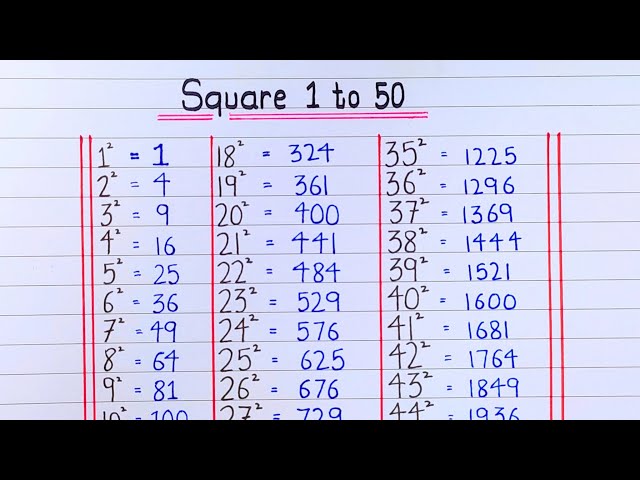 Square 1 to 50
1² = 1
2² = 4
3² = 9
4² = 16
5² = 25
6² = 36
7² = 49
8² = 64
9² = 81
10² = 100
18² = 324
19² = 361
20² = 400
21² = 441
22² = 484
23² = 529
24² = 576
25² = 625
26² = 676
27² = 729
35² = 1225
36² = 1296
37² = 1369
38² = 1444
39² = 1521
40² = 1600
41² = 1681
42² = 1764
43² = 1849
44² = 1936